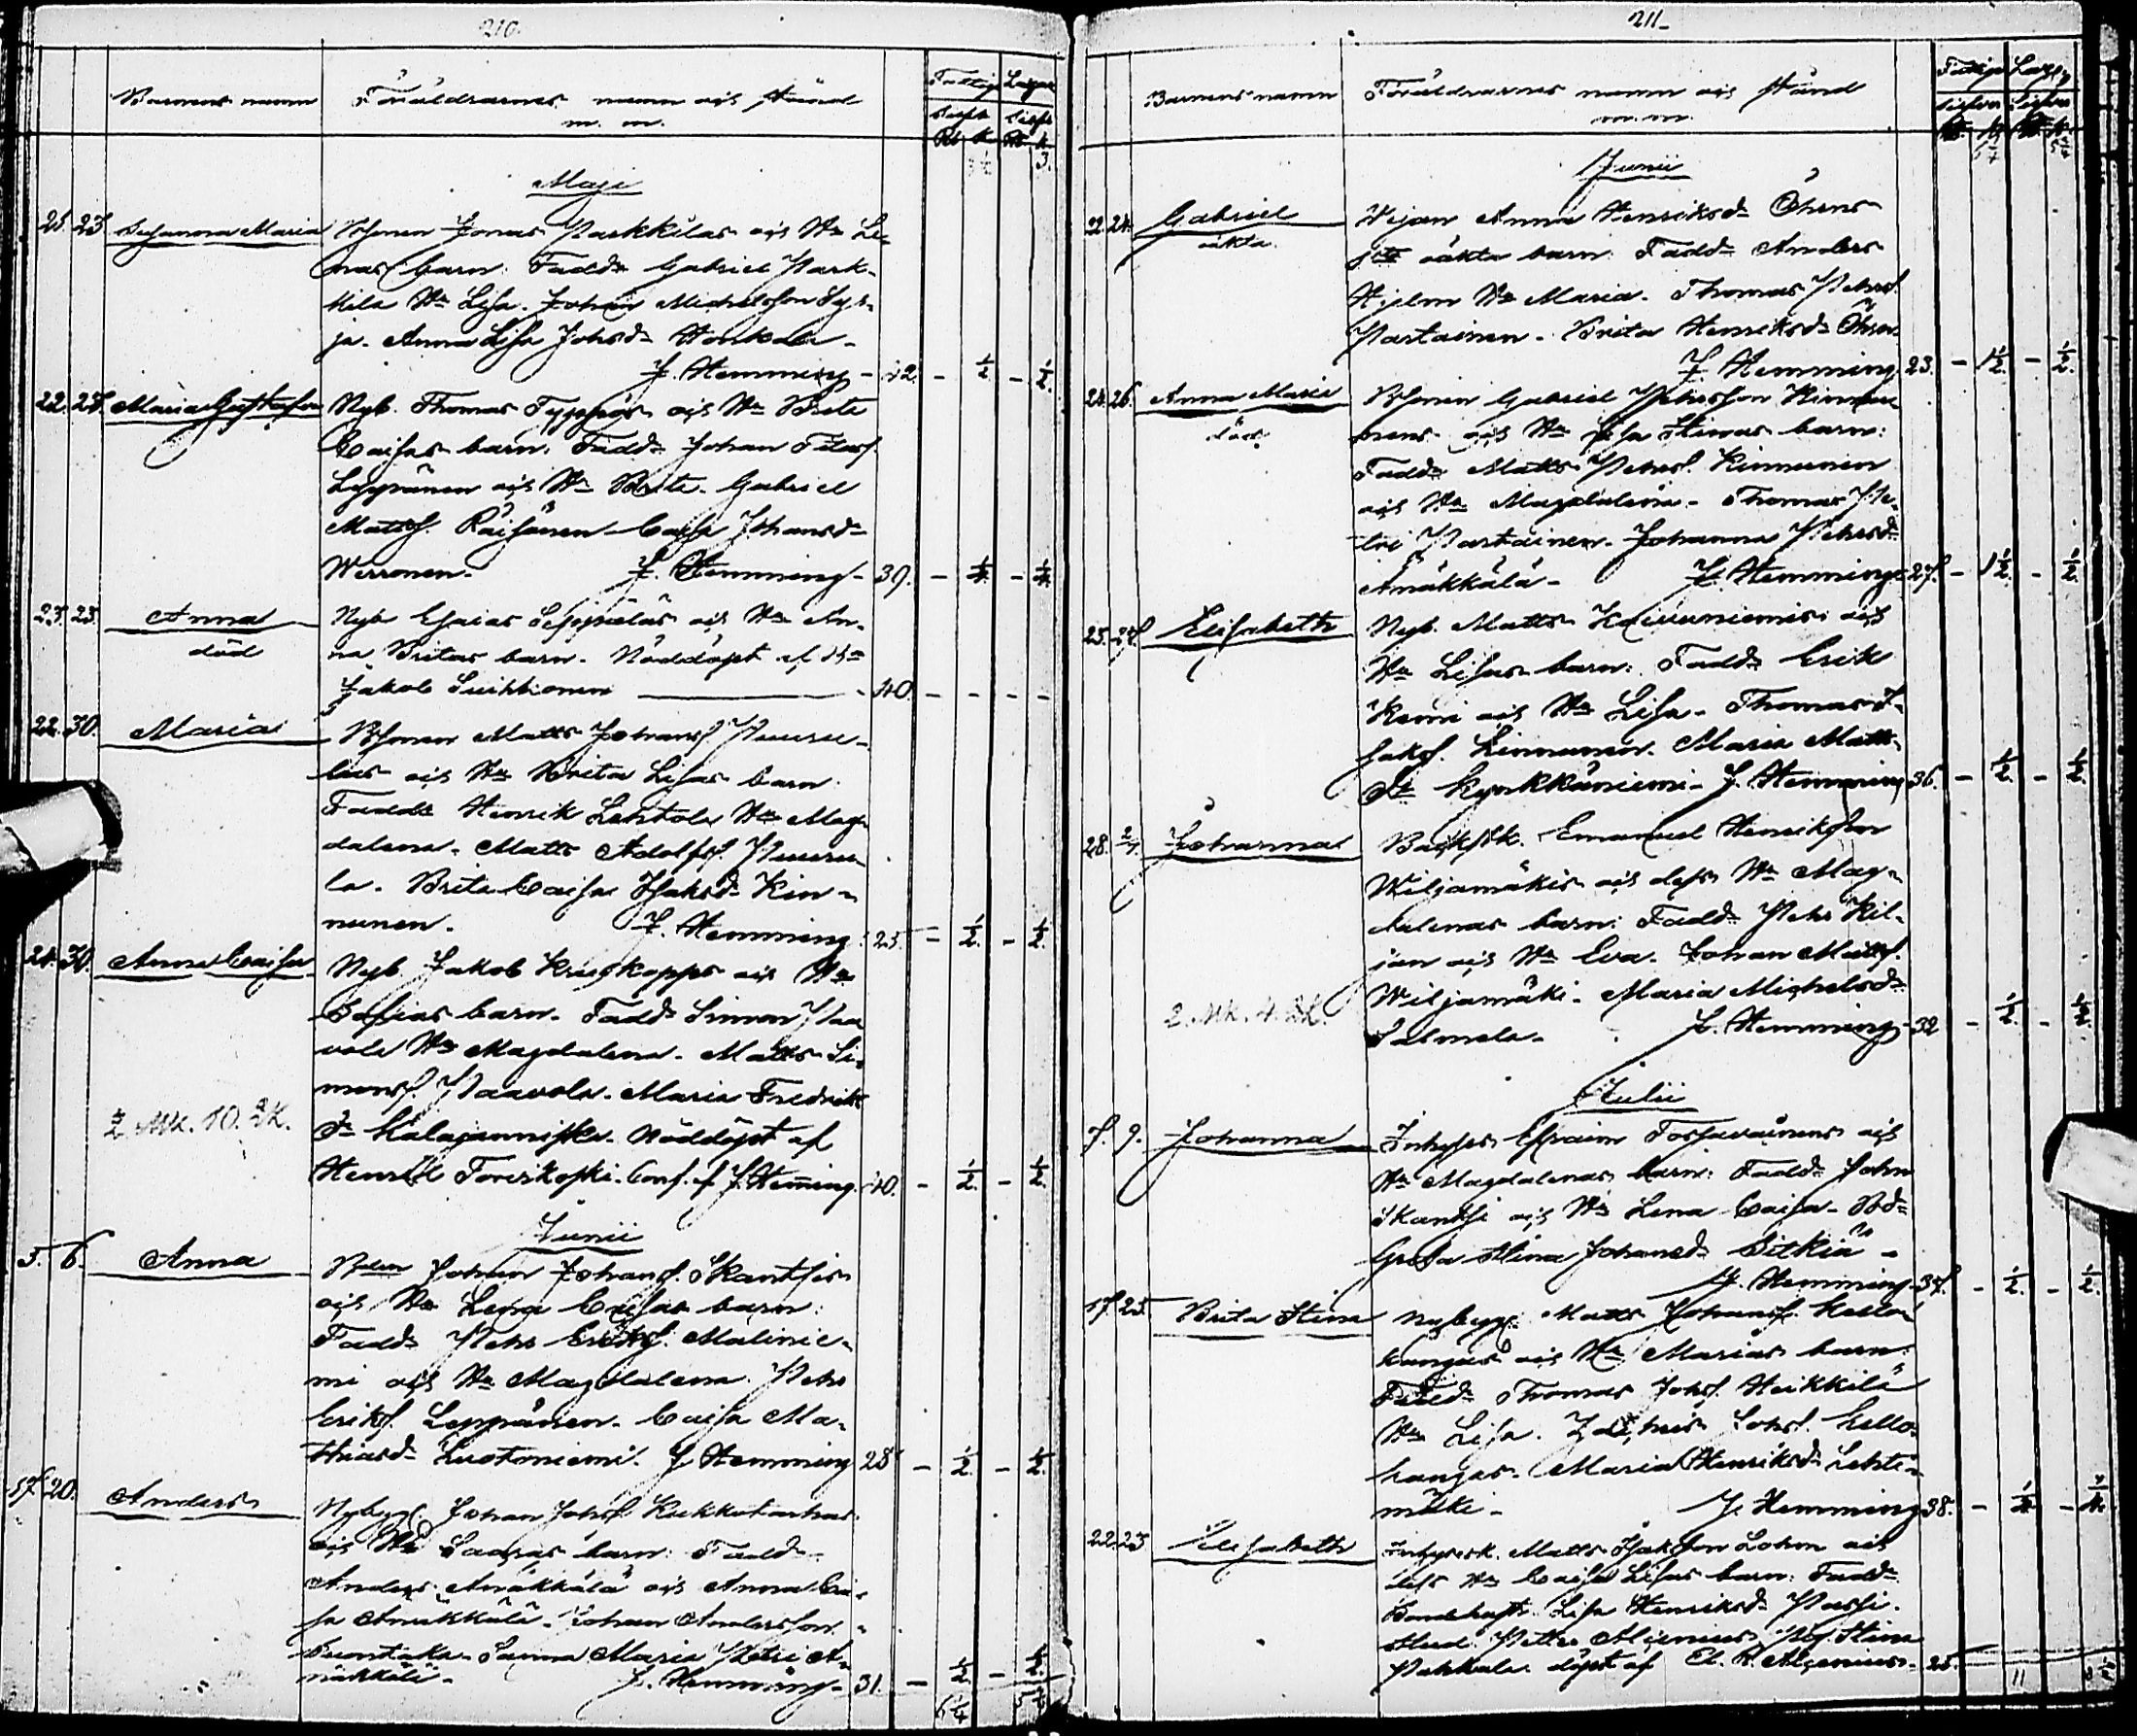 210.
Barnens namn
Föräldrarnes namn och stånd
m. m.
Fattig
Rb k Rb k
3.
Maji
25. 27. Susanna Maria
Bonden Jonas Parkkilas och H:u Le-
nas barn: Fadd: Gabriel Park-
kila H:u Lisa. Johan Michelsson Syr-
jä. Anna Lisa Johsd:r Honkala -
J. Hemming - 42. - 1/2 - 1/2.
22. 27. Maria Gustafva
Nyb. Thomas Typpös och H:u Brita
Caisas barn. Fadd: Johan
Leppänen och H:u Brita. Gabriel
Mattss. Räisänen - Caisa Johansd:r
Werronen. J. Hemming - 39. - 1/4 - 1/4.
23. 25. Anna
död
Nyb. Esaias Seppäläs och H:u An-
na Britas barn. Nöddöpt af
Jakob Suihkonen - 40. - - - -
22. 30. Maria
Bonden Matts Johanss. Puuru-
las och H:u Brita Lisas barn.
Fadd: Henrik Lehtola H:u Mag-
dalena. Matts Adolfss. Puuru-
la. Brita Caisa Isaksd:r Kin-
nunen. J. Hemming. 25. - 1/2. - 1/2.
24. 30. Anna Caisa
Nyb. Jakob Kruskopps och H:u
Sofias barn. Fadd: Simon Paa-
vola H:u Magdalena. Matts Si-
monss. Paavola. Maria Fredriks-
d:r Kalajanniska. Nöddöpt af
Henrik Toreskoski. Conf. af J. Hemming. 40. - 1/2. - 1/2.
2. Mk. 10. Sk.
Junii
5. 6. Anna
Bden Johan Johanss. Skantsis
och H:u Lena Caisas barn:
Fadd: Pehr Erikss. Malinie-
mi och H:u Magdalena. Pehr
Erikss. Leppänen. Caisa Ma-
thiasd:r Luotoniemi. J. Hemming 28 - 1/2. - 1/2.
17. 20. Anders
Nybygg. Johan Johss. Kukkohankas
och H:u Saaras barn: Fadd:
Anders Amäkkälä och Anna Cai-
sa Amäkkälä. Johan Andersson
Sanna Maria Petri A-
mäkkälä. J. Hemming - 31. - 1/2 - 1/2.
211.
Barnens namn
Föräldrarnes namn och stånd
m. m.
Junii
22. 24. Gabriel
oäkta.
Pigan Anna Henriksd:r Öhrns
oäkta barn: Fadd: Anders
Hjelm H:u Maria. Thomas Pehrs.
Partainen. Brita Henriksd:r Öhrn.
J. Hemming 23. - 1 1/2. - 1/2.
24. 26. Anna Maria
död
Bonden Gabriel Pehrsson Kinnu-
nens och H:u Lisa Stinas barn:
Fadd: Matts Pehrs. Kinnunen
och H:u Magdalena. Thomas Pe-
tri Partainen. Johanna Pehrsd:r
Amäkkälä - J. Hemming 27. - 1 1/2. - 1/2.
25. 27. Elisabeth
Nyb. Matts Koivuniemis och
H:u Lisas barn: Fadd: Erik
Kemi och H:u Lisa. Thomas
Jaks. Kinnunen. Maria Matts-
d:r Kyrkkäniemi - J. Hemming 36. - 1/2. - 1/2.
28. 2/7. Johanna
Backstk. Emanuel Henriksson
Wiljamäkis och dess H:u Mag-
dalenas barn: Fadd: Pehr Kil-
jan och H:u Eva. Johan Mattss.
Wiljamäki. Maria Michelsd:r
Salmela. J. Hemming - 32 - 1/2. - 1/2.
2. Mk. 4. Sk.
Julii
7. 9. Johanna
Inhyses Efraim Torsavainens och
H:u Magdalenas barn: Fadd: John
Skantsi och H:u Lena Caisa.
Greta Stina Johansd:r Pitkiä -
J. Hemming - 37. - 1/2. - 1/2.
17. 25. Brita Stina
Nybygg. Matts Johanss. Kello-
kangas och H:u Marias barn.
Fadd: Thomas Johss. Heikkilä
H:u Lisa. Zachris Johss. Kello-
kangas. Maria Henriksd:r Lehti-
mäki - J. Hemming 38. - 1/4 - 1/4.
22. 23 Elisabeth
Inhysesk. Matts Isaksson Lohva och
dess H:u Caisa Lisas barn: Fadd:
Lisa Henriksd:r Passi.
Stud. Petter Alcenius. Pig. Stina
Pakkala. döpt af El. R. Alcenius. 25.
11